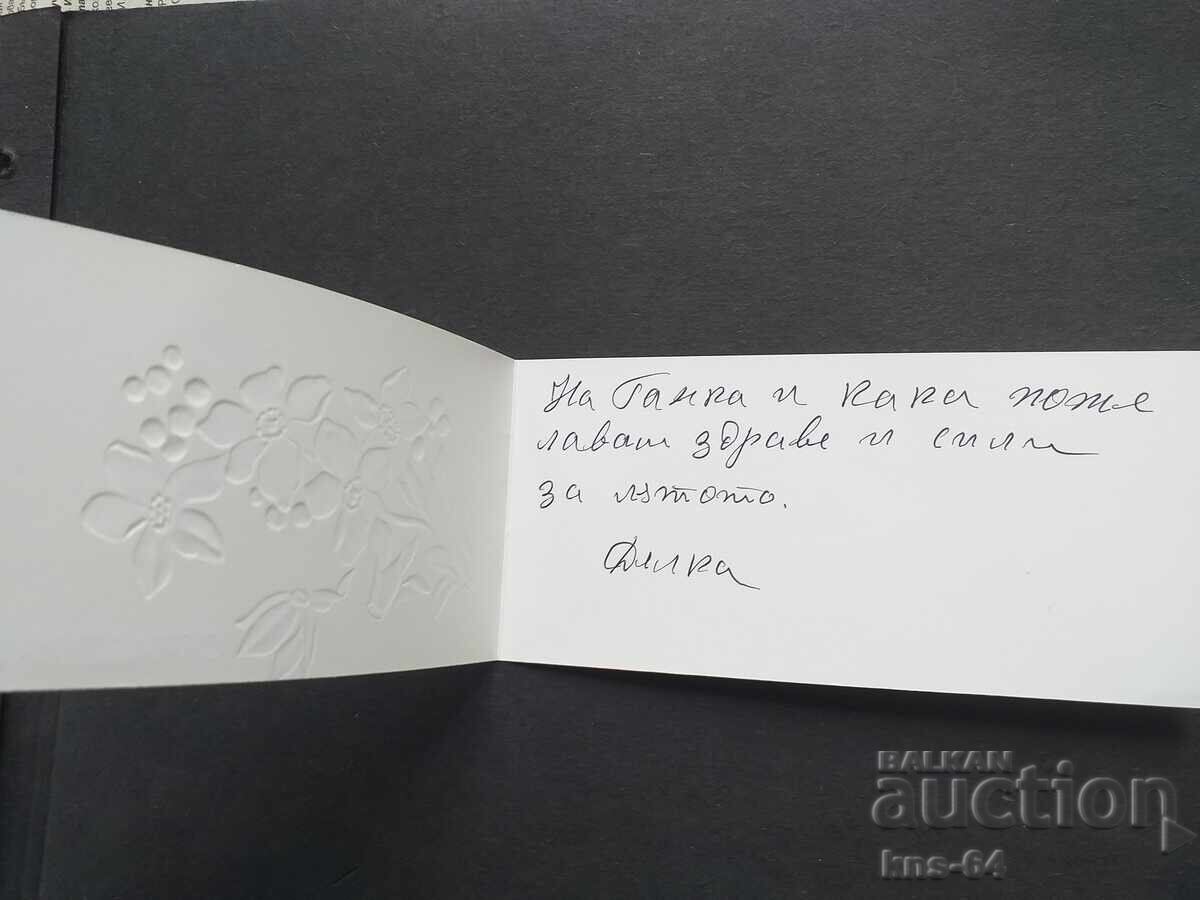 На Ганка и кака поже
лавам здраве и сили
за лятото.
Дилка
BALKAN
auction
kns-64